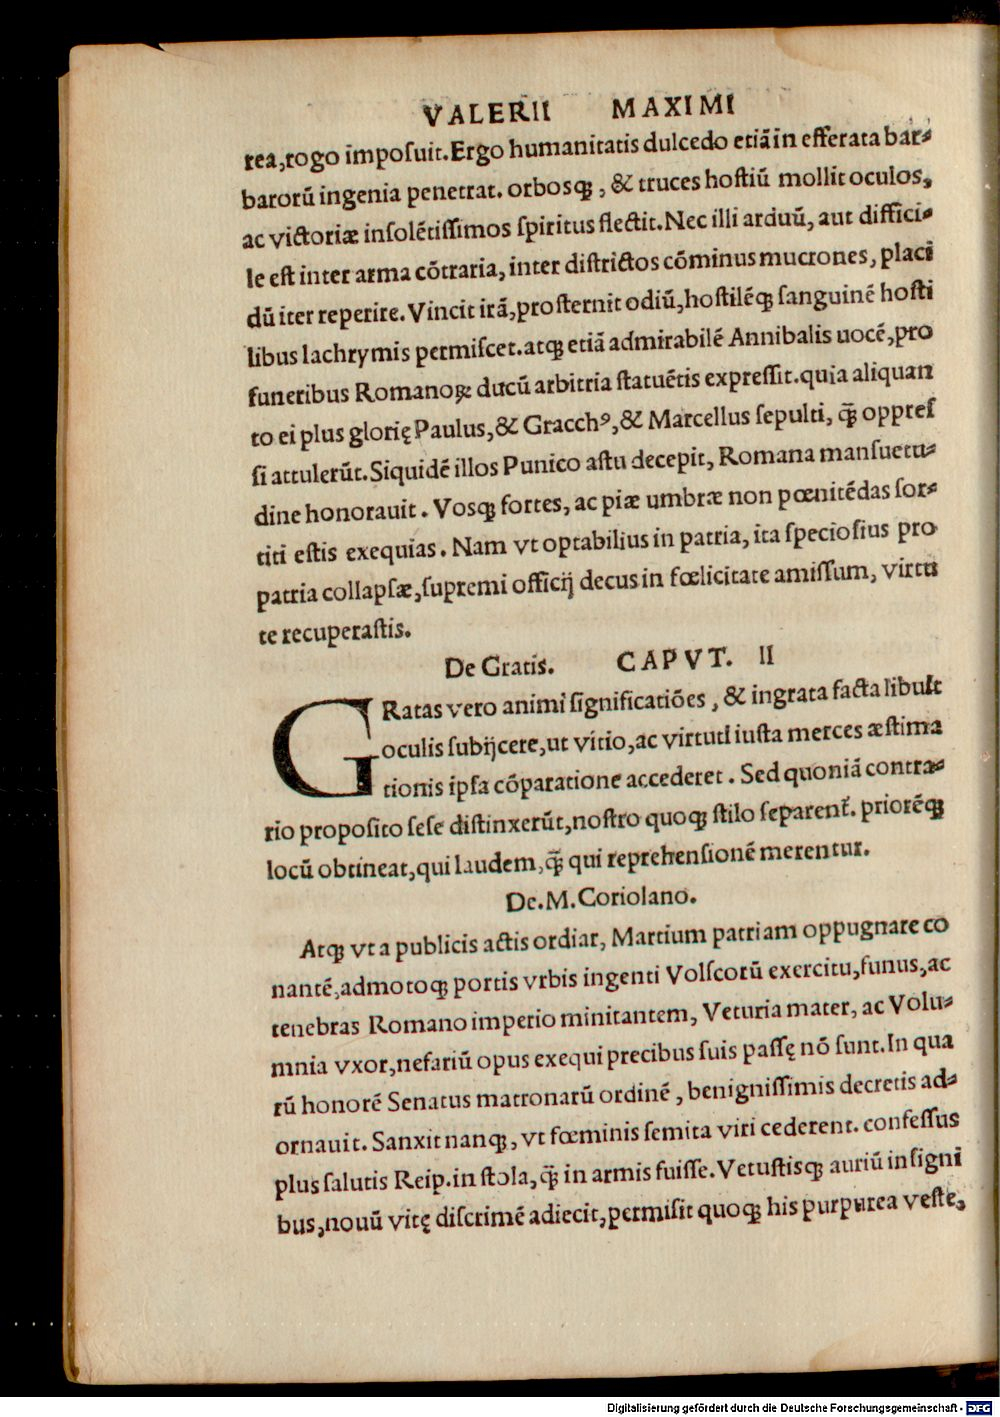 VALERII MAXIMI
rea,rogo imposuit.Ergo humanitatis dulcedo etiā in efferata bar⸗
barorū ingenia penetrat. orbosqꝫ, & truces hostiū mollit oculos,
ac victoriæ insolētissimos spiritus flectit. Nec illi arduū, aut diffici⸗
le est inter arma cōtraria, inter districtos cōminus mucrones, placi
dū iter reperire. Vincit irā,prosternit odiū,hostilēqꝫ sanguinē hosti
libus lachrymis permiscet.atqꝫ etiā admirabilē Annibalis uocē,pro
funeribus Romanoꝝ ducū arbitria statuētis expressit.quia aliquan
to ei plus glorię Paulus,& Gracchꝰ,& Marcellus sepulti, q̄ꝫ oppres
si attulerūt.Siquidē illos Punico astu decepit, Romana mansuetu⸗
dine honorauit. Vosqꝫ fortes, ac piæ umbræ non pœnitēdas sor⸗
titi estis exequias. Nam vt optabilius in patria, ita speciosius pro
patria collapsæ,supremi officij decus in fœlicitate amissum, virtu
te recuperastis.
De Gratis. CAPVT. II
GRatas vero animi significatiōes, & ingrata facta libuit
oculis subijcere,ut vitio,ac virtuti iusta merces æstima
tionis ipsa cōparatione accederet. Sed quoniā contra⸗
rio proposito sese distinxerūt,nostro quoqꝫ stilo separent̃. priorēqꝫ
locū obtineat,qui laudem,q̄ꝫ qui reprehensionē merentur.
De.M.Coriolano.
Atqꝫ vt a publicis actis ordiar, Martium patriam oppugnare co
nantē,admotoqꝫ portis vrbis ingenti Volscorū exercitu,funus,ac
tenebras Romano imperio minitantem, Veturia mater, ac Volu⸗
mnia vxor,nefariū opus exequi precibus suis passę nō sunt.In qua
rū honorē Senatus matronarū ordinē, benignissimis decretis ad⸗
ornauit. Sanxit nanqꝫ, vt fœminis semita viri cederent. confessus
plus salutis Reip.in stola,q̄ꝫ in armis fuisse.Vetustisqꝫ auriū insigni
bus,nouū vitę discrimē adiecit,permisit quoqꝫ his purpurea veste,
Digitalisierung gefördert durch die Deutsche Forschungsgemeinschaft - DFG